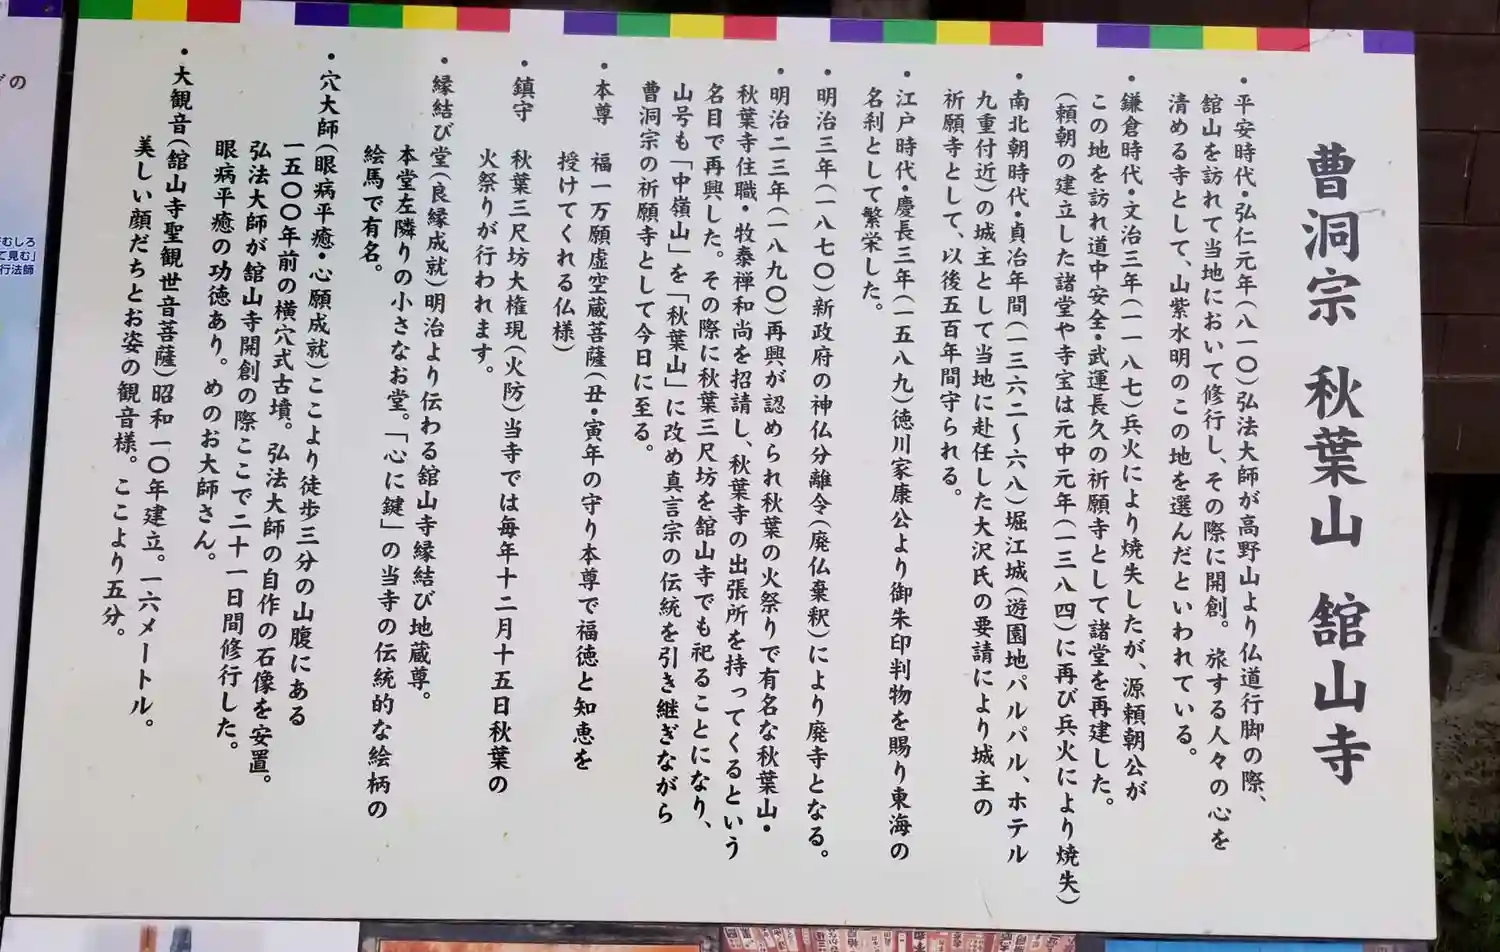 曹洞宗 秋葉山 舘山寺
・平安時代・弘仁元年(八一〇)弘法大師が高野山より仏道行脚の際、
舘山を訪れて当地において修行し、その際に開創。旅する人々の心を
清める寺として、山紫水明のこの地を選んだといわれている。
・鎌倉時代・文治三年(一一八七)兵火により焼失したが、源頼朝公が
この地を訪れ道中安全・武運長久の祈願寺として諸堂を再建した。
(頼朝の建立した諸堂や寺宝は元中元年(一三八四)に再び兵火により焼失)
・南北朝時代・貞治年間(一三六二〜六八)堀江城(遊園地パルパル、ホテル
九重付近)の城主として当地に赴任した大沢氏の要請により城主の
祈願寺として、以後五百年間守られる。
・江戸時代・慶長三年(一五八九)徳川家康公より御朱印判物を賜り東海の
名刹として繁栄した。
・明治三年(一八七〇)新政府の神仏分離令(廃仏棄釈)により廃寺となる。
・明治二三年(一八九〇)再興が認められ秋葉の火祭りで有名な秋葉山・
秋葉寺住職・牧泰禅和尚を招請し、秋葉寺の出張所を持ってくるという
名目で再興した。その際に秋葉三尺坊を舘山寺でも祀ることになり、
山号も「中嶺山」を「秋葉山」に改め真言宗の伝統を引き継ぎながら
曹洞宗の祈願寺として今日に至る。
・本尊 福一万願虚空蔵菩薩(丑・寅年の守り本尊で福徳と知恵を
授けてくれる仏様)
・鎮守 秋葉三尺坊大権現(火防)当寺では毎年十二月十五日秋葉の
火祭りが行われます。
・縁結び堂(良縁成就)明治より伝わる舘山寺縁結び地蔵尊。
本堂左隣りの小さなお堂。「心に鍵」の当寺の伝統的な絵柄の
絵馬で有名。
・穴大師(眼病平癒・心願成就)ここより徒歩三分の山腹にある
一五〇〇年前の横穴式古墳。弘法大師の自作の石像を安置。
弘法大師が舘山寺開創の際ここで二十一日間修行した。
眼病平癒の功徳あり。めのお大師さん。
・大観音(舘山寺聖観世音菩薩)昭和一〇年建立。一六メートル。
美しい顔だちとお姿の観音様。ここより五分。
の
むしろ
て見む」
行法師